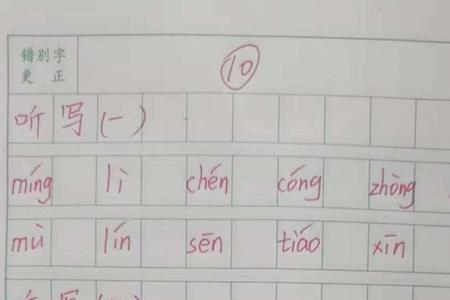 错别字
更 正
10
听写(一)
míng lì chén cóng zhòng
mù lín sēn tiáo xīn
听写